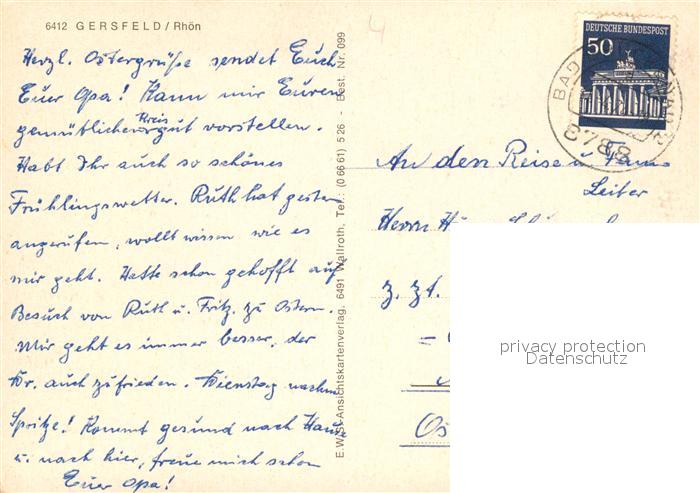 6412 GERSFELD / Rhön
Herzl. Ostergrüße sendet Euch
Euer Opa! Kann mir Euren
Kreis
gemütlichen gut vorstellen.
Habt Ihr auch so schönes
Frühlingswetter. Ruth hat gestern
angerufen, wollt wissen wie es
mir geht. Hatte schon gehofft auf
Besuch von Ruth u. Fritz zu Ostern.
Mir geht es immer besser, der
Dr. auch zufrieden. Dienstag nachm
Spritze! Kommt gesund nach Hause
u. nach hier, freue mich schon
Euer Opa!
E.W.S.-Ansichtskartenverlag, 6491 Wallroth, Tel.: (0 66 61) 5 26 - Best. Nr. 099
4
DEUTSCHE BUNDESPOST
50
BAD
8788
An den Reise u.
Leiter
Herrn
z. Zt.
privacy protection
Datenschutz